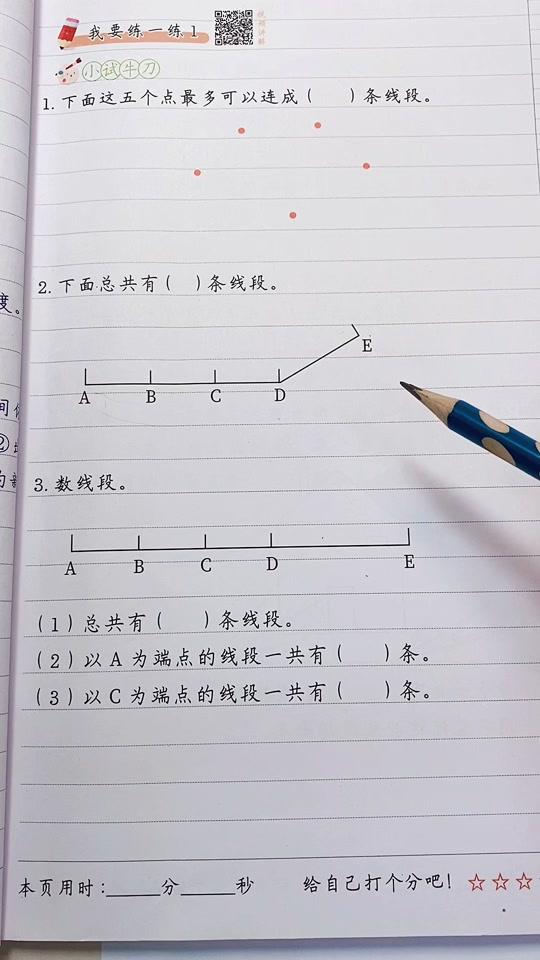 我要练一练1
视频讲解
小试牛刀
1.下面这五个点最多可以连成(  )条线段。
2.下面总共有(  )条线段。
E
A B C D
3.数线段。
A B C D E
(1)总共有(  )条线段。
(2)以A为端点的线段一共有(  )条。
(3)以C为端点的线段一共有(  )条。
本页用时:____分____秒 给自己打个分吧!☆☆☆
度。
间
②